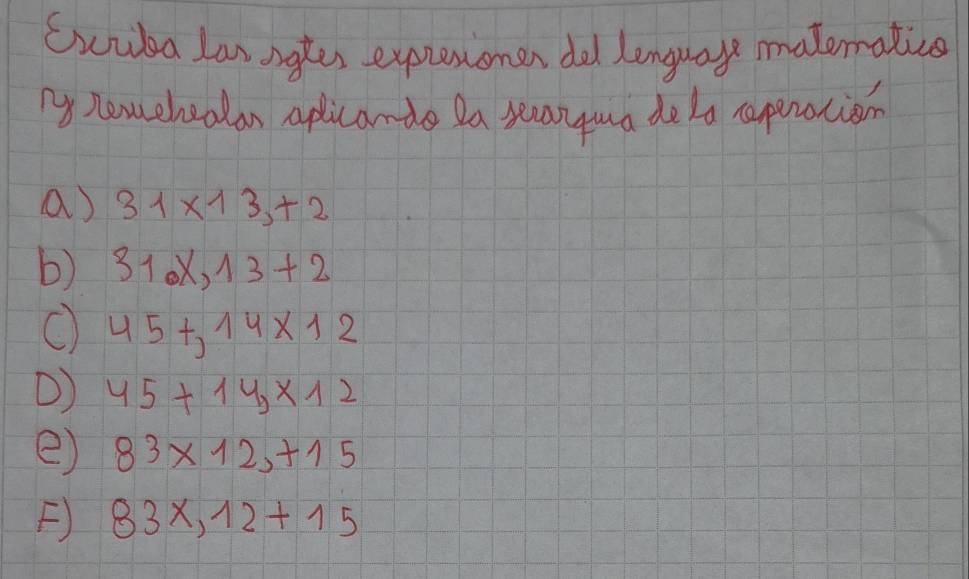 Escriba las sgtes expresiones del lenguaje matematico
y resuelvalas aplicando la jerarquia de la operación
a) 31x13,+2
b) 31.x,13+2
C) 45+,14x12
D) 45+14,x12
e) 83x12,+15
F) 83x,12+15